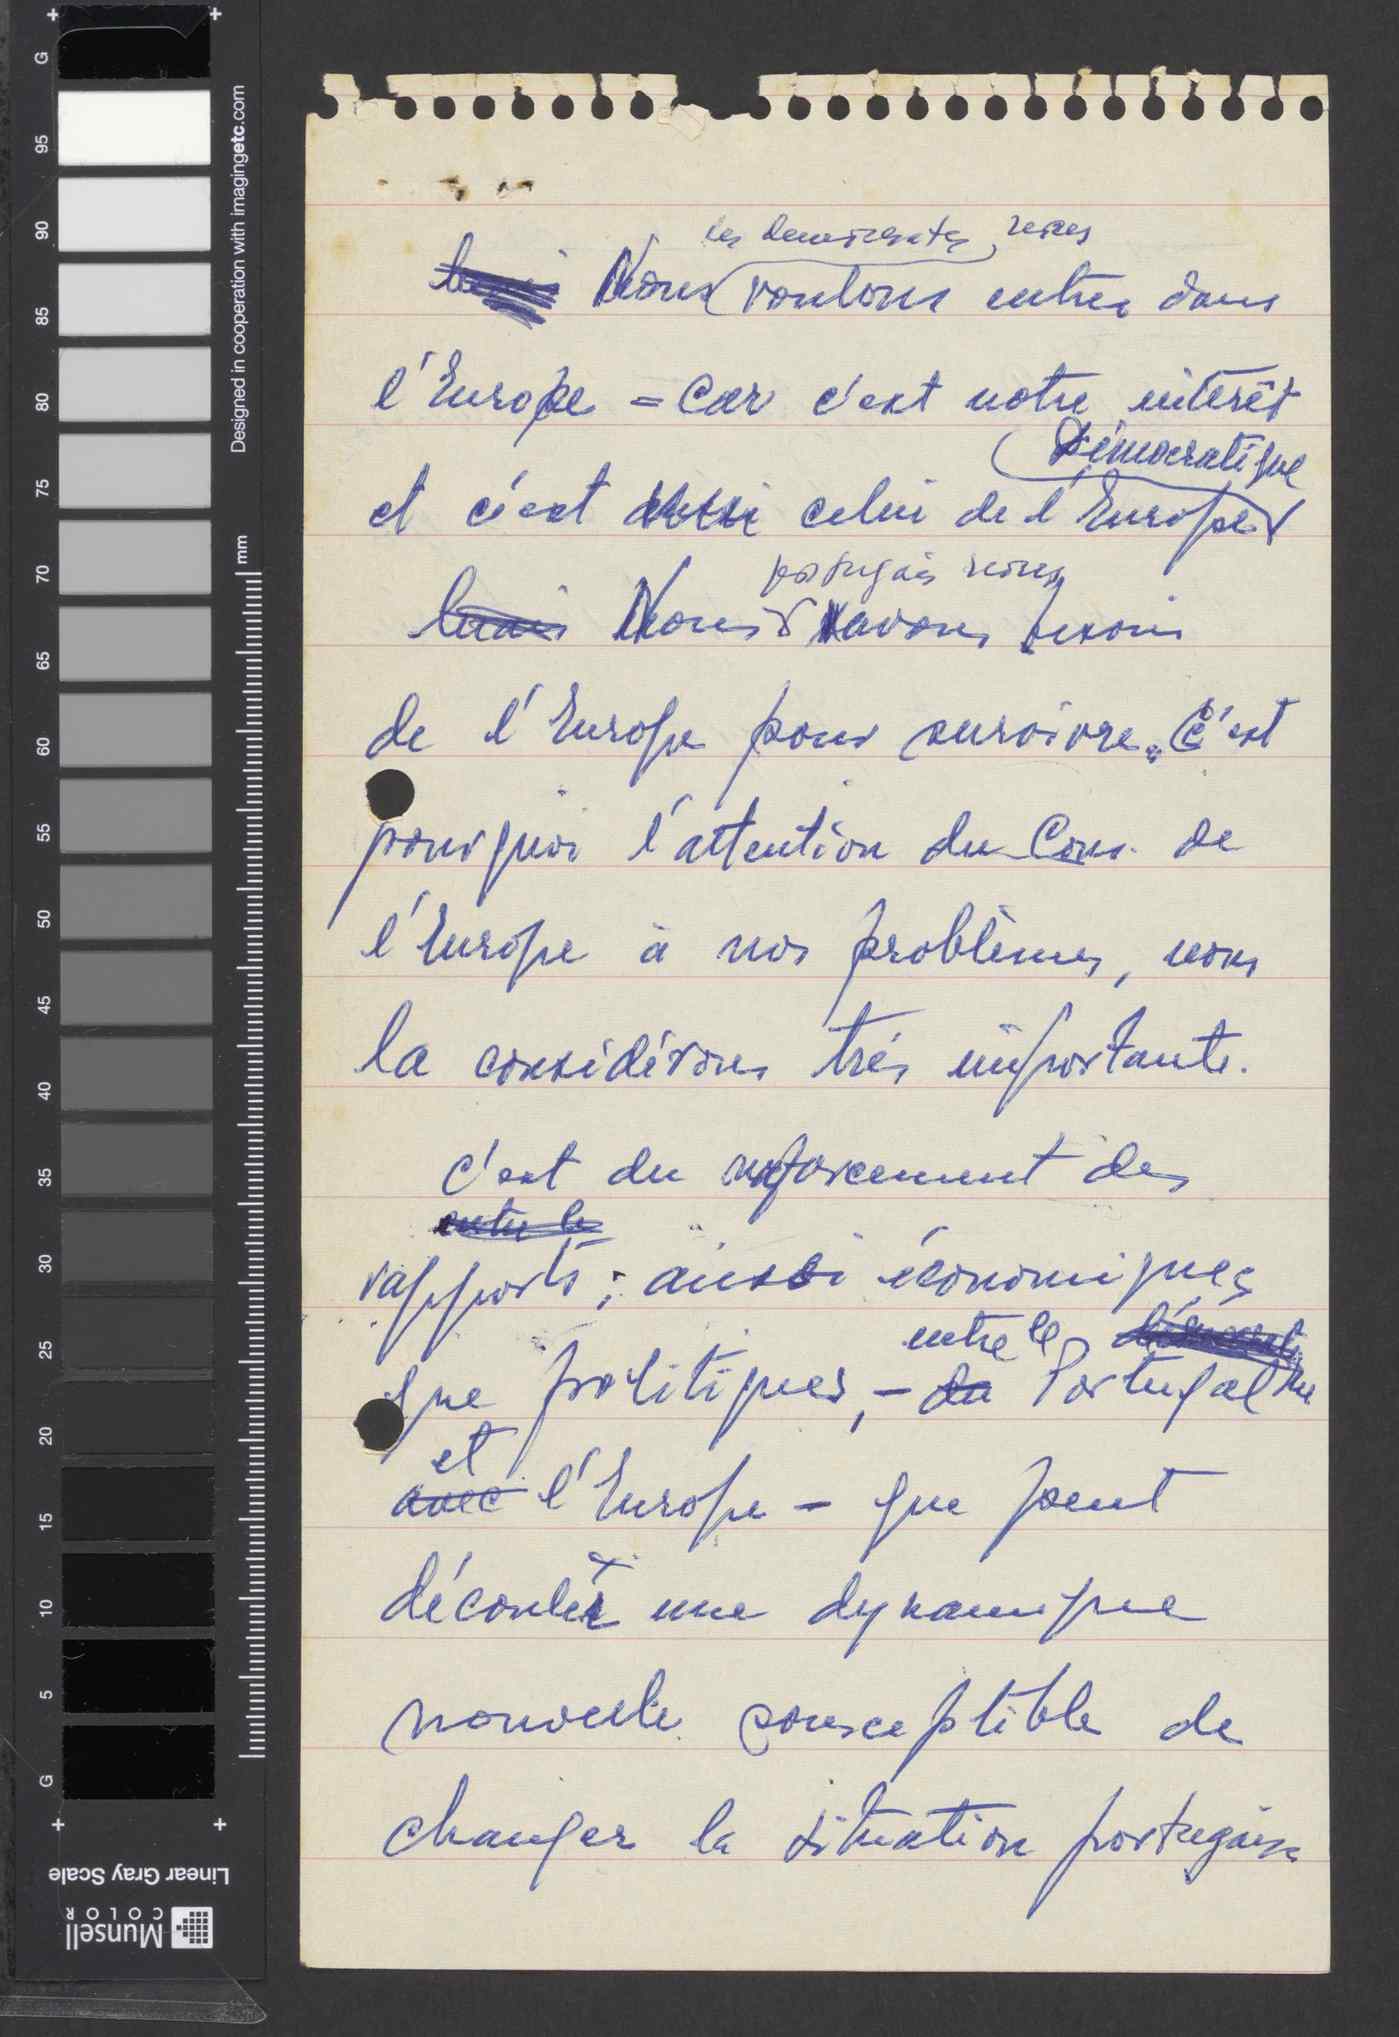 les democrates, nous
Nous voulons entrer dans
l'Europe = Car c'est notre intérêt
Démocratique
et c'est aussi celui de l'Europe
portugais nous
mais Nous avons besoin
de l'Europe pour survivre. C'est
pourquoi l'attention du Cons. de
l'Europe à nos problèmes, nous
la considérons très importante.
C'est du renforcement des
entre le
rapports; aussi économiques
entre le
que politiques, - du Portugal
et
avec l'Europe - que peut
découler une dynamique
nouvelle sousceptible de
changer la situation portugaise
Designed in cooperation with imagingetc.com
mm
G
95
90
85
80
75
70
65
60
55
50
45
40
35
30
25
20
15
10
5
G
Linear Gray Scale
Munsell
COLOR